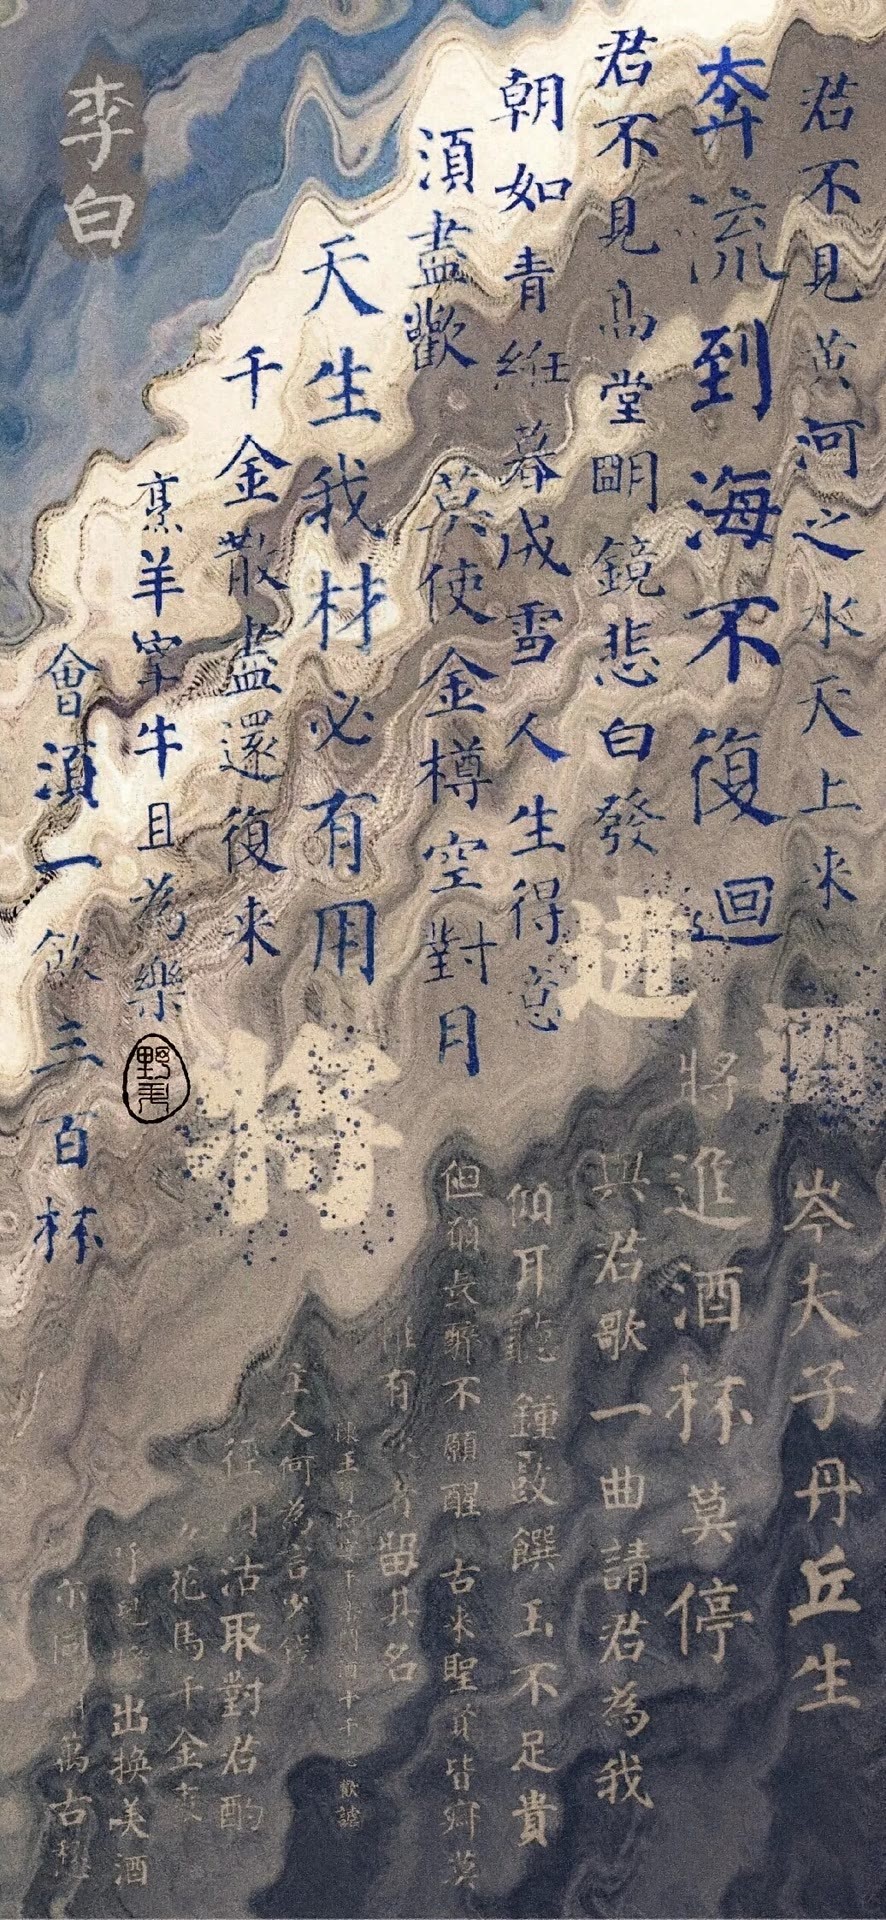 君不見黃河之水天上来
奔流到海不復迴
君不見高堂明鏡悲白發
朝如青絲暮成雪人生得意
須盡歡
莫使金樽空對月
天生我材必有用
千金散盡還復来
烹羊宰牛且為樂
會須一飲三百杯
李白
野
將
進
酒
岑夫子丹丘生
將進酒杯莫停
與君歌一曲請君為我
傾耳聽鍾鼓饌玉不足貴
但願長醉不願醒
古来聖賢皆寂莫
惟有飲者留其名
陳王
主人何為言少錢
徑
沽取對君酌
花馬千金裘
出換美酒
同
萬古愁